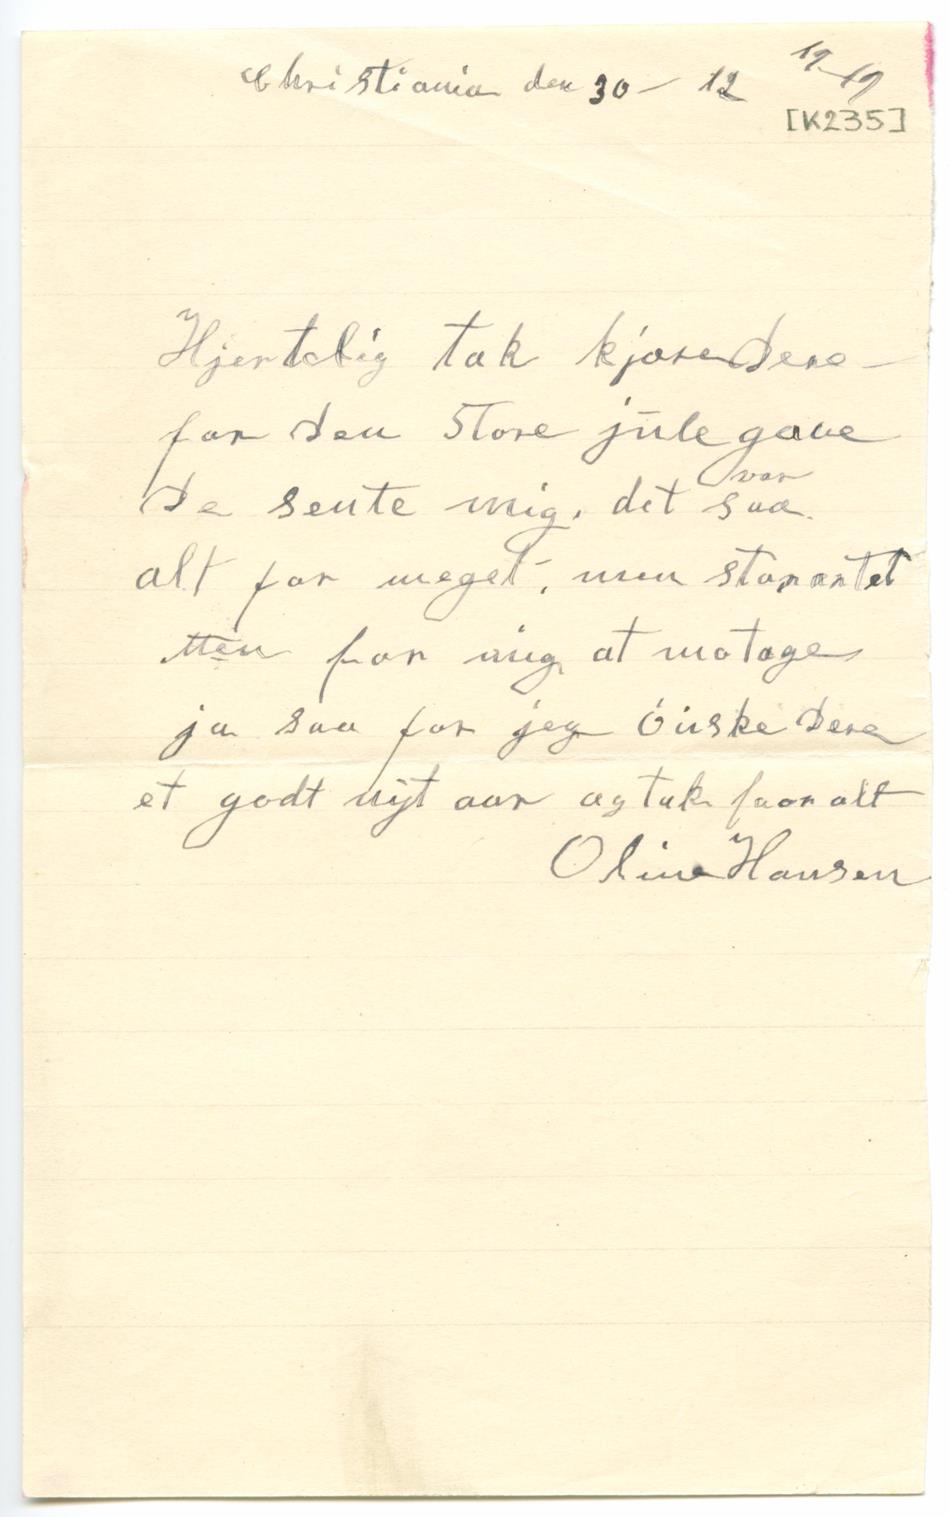 Christiania den 30 – 12 19–19
[K235]
Hjertelig tak kjære Dere –
for den Store julegave
De sente mig. det var saa
alt for meget, men storartet
Men for mig at motage
ja saa for jeg önske Dere
et godt nyt aar og tak faar alt
Oline Hansen